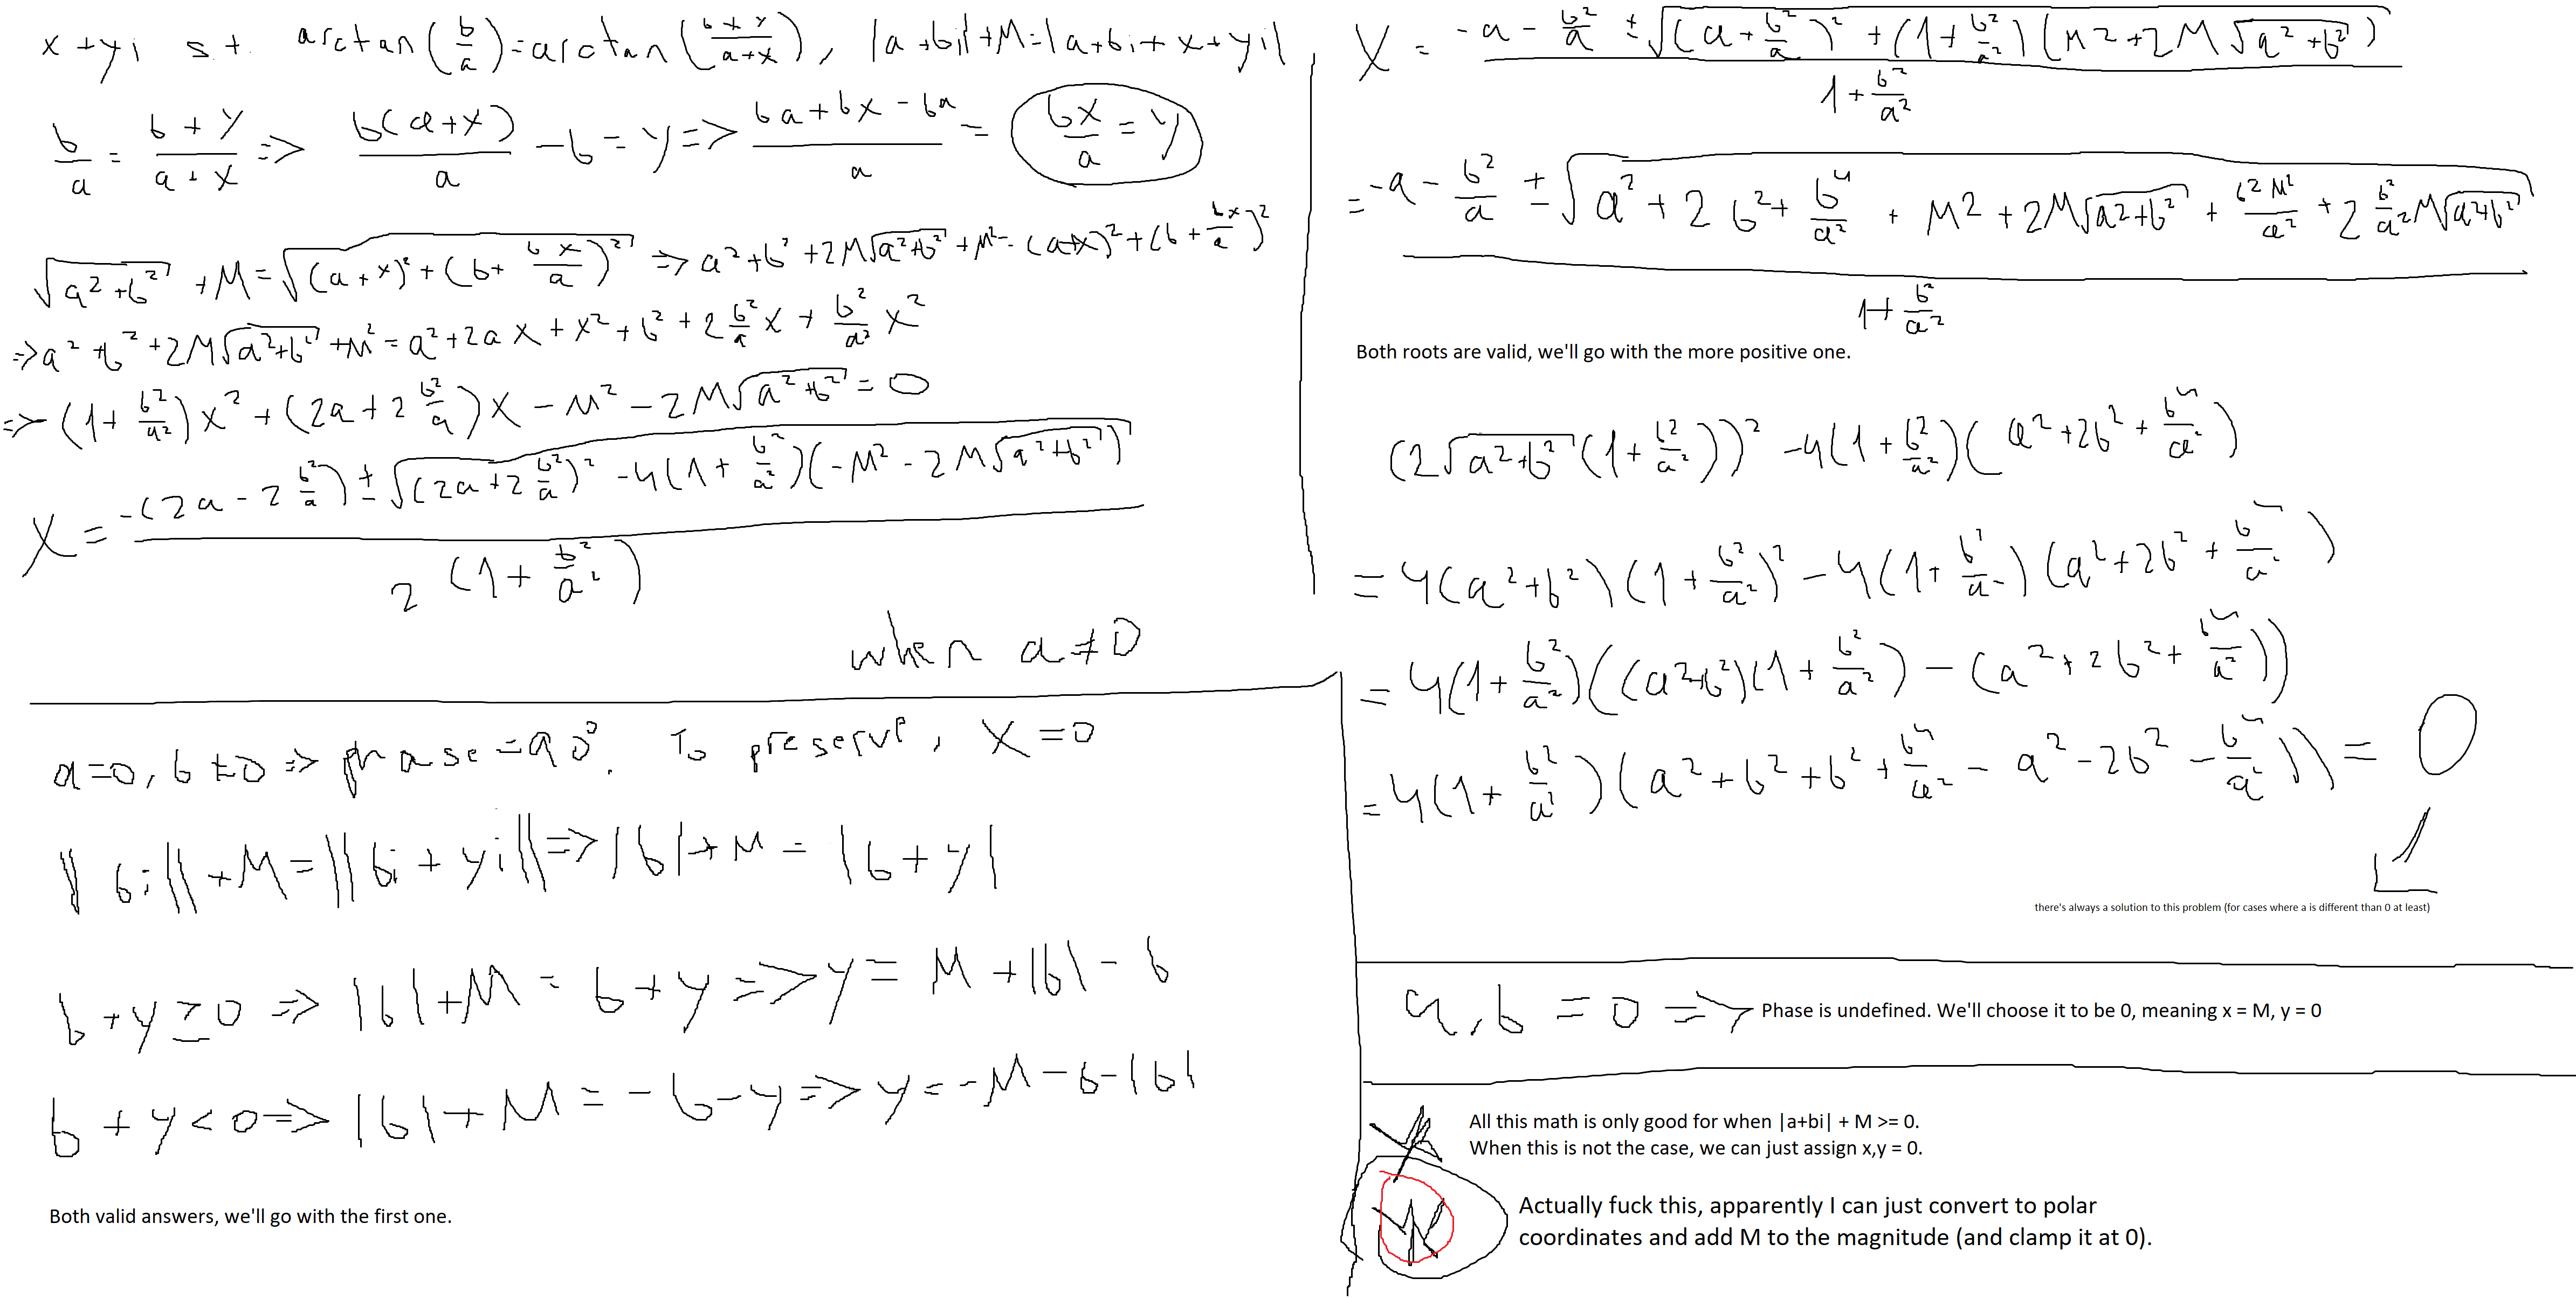 x + yi s.t. arctan(b/a) = arctan((b+y)/(a+x)), |a+bi| + M = |a+bi+x+yi|
b/a = (b+y)/(a+x) => b(a+x)/a - b = y => (ba+bx-ba)/a = bx/a = y
√(a²+b²) + M = √((a+x)² + (b + bx/a)²) => a²+b²+2M√(a²+b²)+M² = (a+x)²+(b+bx/a)²
=> a²+b²+2M√(a²+b²)+M² = a²+2ax+x²+b²+2(b²/a)x+(b²/a²)x²
=> (1+b²/a²)x² + (2a+2b²/a)x - M² - 2M√(a²+b²) = 0
X = (-(2a-2b²/a) ± √((2a+2b²/a)² - 4(1+b²/a²)(-M²-2M√(a²+b²)))) / 2(1+b²/a²)
when a≠0
a=0, b≠0 => phase=90°. To preserve, X=0
||bi||+M=||bi+yi|| => |b|+M = |b+y|
b+y≥0 => |b|+M = b+y => y = M+|b|-b
b+y<0 => |b|+M = -b-y => y = -M-b-|b|
Both valid answers, we'll go with the first one.
X = (-a - b²/a ± √((a+b²/a)² + (1+b²/a²)(M²+2M√(a²+b²)))) / (1+b²/a²)
= (-a - b²/a ± √(a²+2b²+b⁴/a²+M²+2M√(a²+b²)+b²M²/a²+2(b²/a²)M√(a²+b²))) / (1+b²/a²)
Both roots are valid, we'll go with the more positive one.
(2√(a²+b²)(1+b²/a²))² - 4(1+b²/a²)(a²+2b²+b⁴/a²)
= 4(a²+b²)(1+b²/a²)² - 4(1+b²/a²)(a²+2b²+b⁴/a²)
= 4(1+b²/a²)((a²+b²)(1+b²/a²) - (a²+2b²+b⁴/a²))
= 4(1+b²/a²)(a²+b²+b²+b⁴/a² - a²-2b²-b⁴/a²)) = 0
there's always a solution to this problem (for cases where a is different than 0 at least)
a,b = 0 => Phase is undefined. We'll choose it to be 0, meaning x = M, y = 0
All this math is only good for when |a+bi| + M >= 0.
When this is not the case, we can just assign x,y = 0.
Actually fuck this, apparently I can just convert to polar
coordinates and add M to the magnitude (and clamp it at 0).